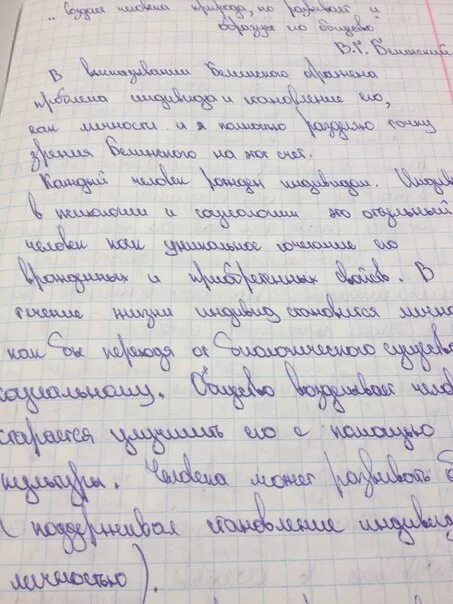 „создает человека природа, но развивает и
образует его общество"
В.Г. Белинский
В высказывании Белинского отражена
проблема индивида и становление его,
как личности и я полностью разделяю точку
зрения Белинского на этот счет.
Каждый человек рожден индивидом. Индиви
в психологии и социологии это отдельный
человек как уникальное сочетание его
врожденных и приобретенных свойств. В
течение жизни индивид становится лично
как бы переходя от биологического существ
социальному. Общество возделывает челов
старается улучшить его с помощью
культуры. Человека может развивать
( поддерживая становление индивид
личностью).